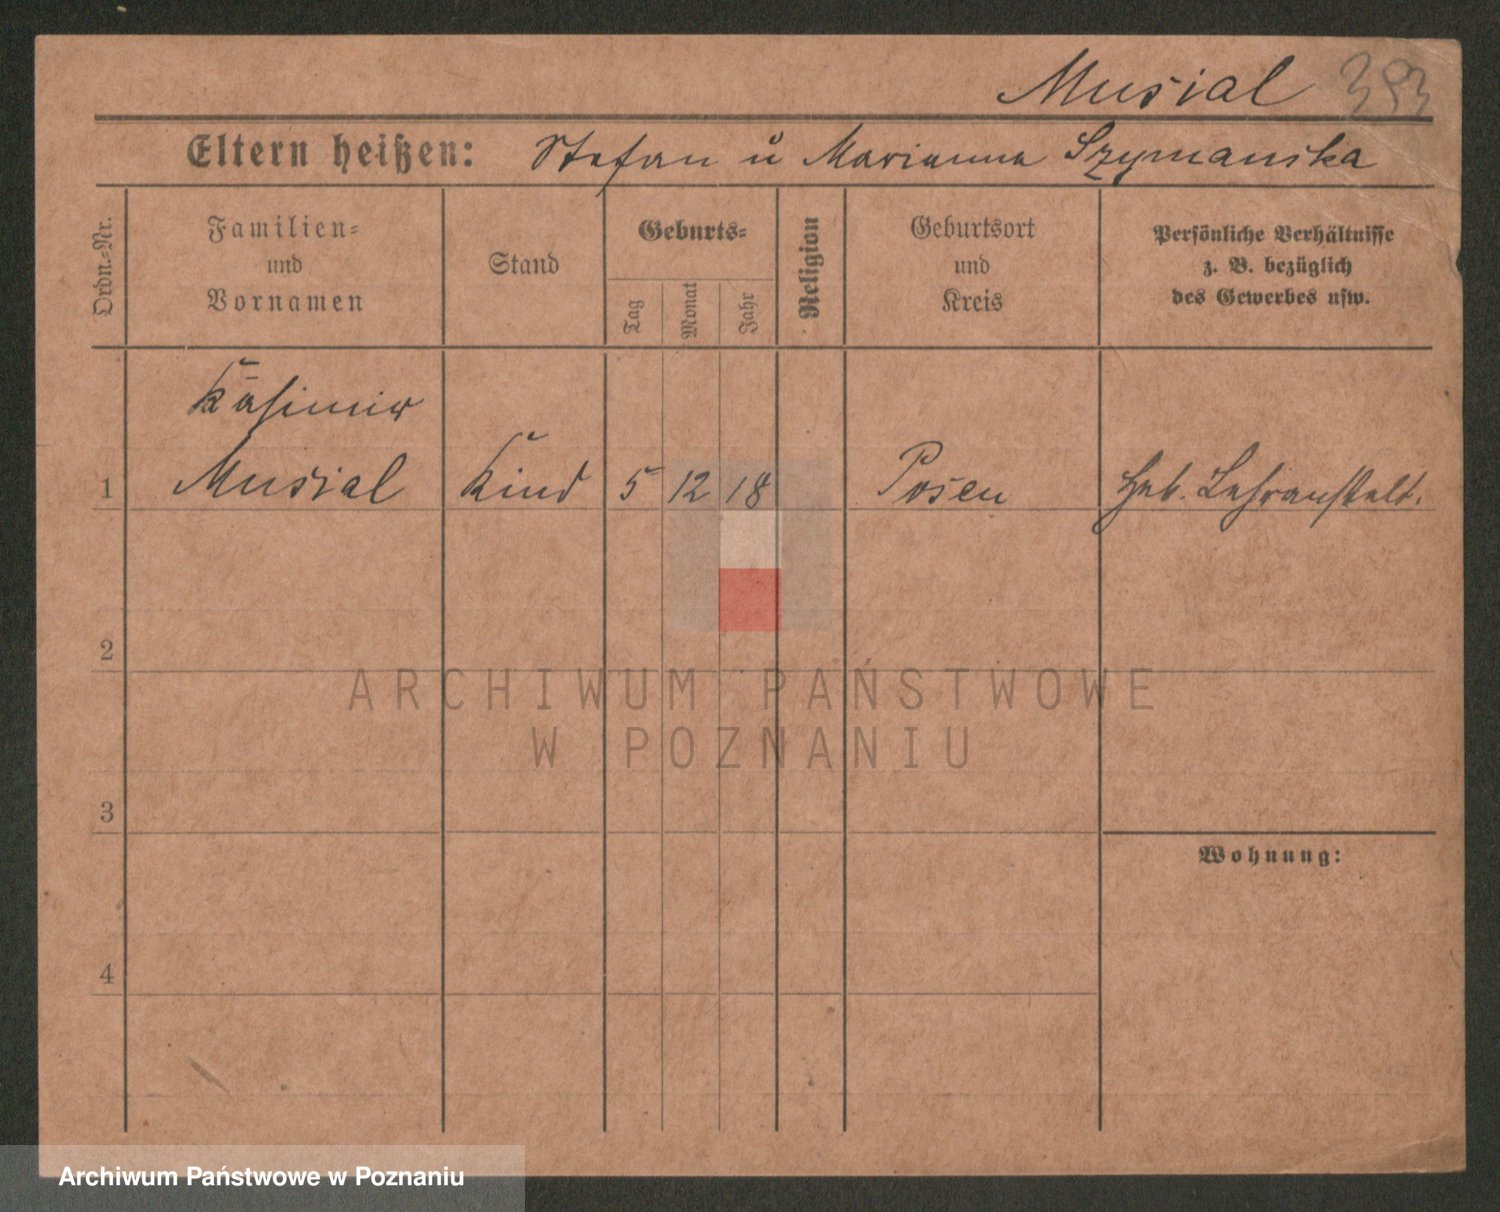 Musial 393
Eltern heißen: Stefan u Marianna Szymanska
Ordn.-Nr.
Familien-
und
Vornamen
Stand
Geburts-
Tag
Monat
Jahr
Religion
Geburtsort
und
Kreis
Persönliche Verhältnisse
z. B. bezüglich
des Gewerbes usw.
Kasimir
1 Musial Kind 5 12 18 Posen Heb. Lehranstalt.
2
3
Wohnung:
4
ARCHIWUM PAŃSTWOWE
W POZNANIU
Archiwum Państwowe w Poznaniu